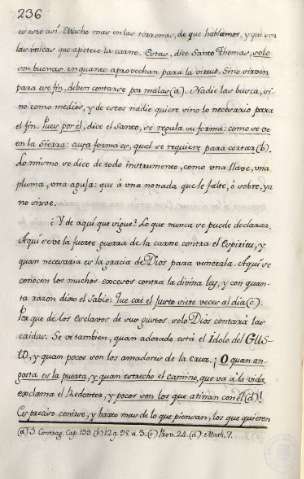 236
es este así. Mucho mas en las razones, de que hablamos, y que son
las únicas que apetece la carne. Estas, dice Santo Thomas, solo
son buenas en quanto aprovechan para la virtud. Sino sirven
para ese fin, deben contarse por malas (a). Nadie las busca, si-
no como medios, y de estos nadie quiere sino lo necesario para
el fin. Pues por él, dice el Santo, se regula su forma: como se ve
en la Sierra: cuya forma es, qual se requiere para cortar (b).
Lo mismo se dice de todo instrumento, como una llave, una
pluma, una aguja: que á una nonada que le falte, ó sobre, ya
no sirve.
¿Y de aquí que sigue? Lo que nunca se puede declarar.
Aquí se ve la fuerte guerra de la carne contra el Espíritu, y
quan necesaria es la gracia de Dios para vencerla. Aquí se
conocen los muchos excesos contra la divina ley, y con quan-
ta razon dixo el Sabio: Que cae el justo siete veces al dia (c).
Por que de los esclavos de sus gustos solo Dios contará las
caidas. Se ve tambien, quan adorado está el Idolo del GUS-
TO, y quan pocos son los amadores de la cruz. ¡O quan an-
gosta es la puerta, y quan estrecho el camino, que va á la vida,
exclama el Redentor, y pocos son los que atinan con él (d)!
Es preciso concluir, y harto mas de lo que piensan, los que quieren
(a) 3. Contrag. Cap. 133. (b) 1. 2. q. 95. a. 3. (c) Prov. 24. (d) Math. 7.